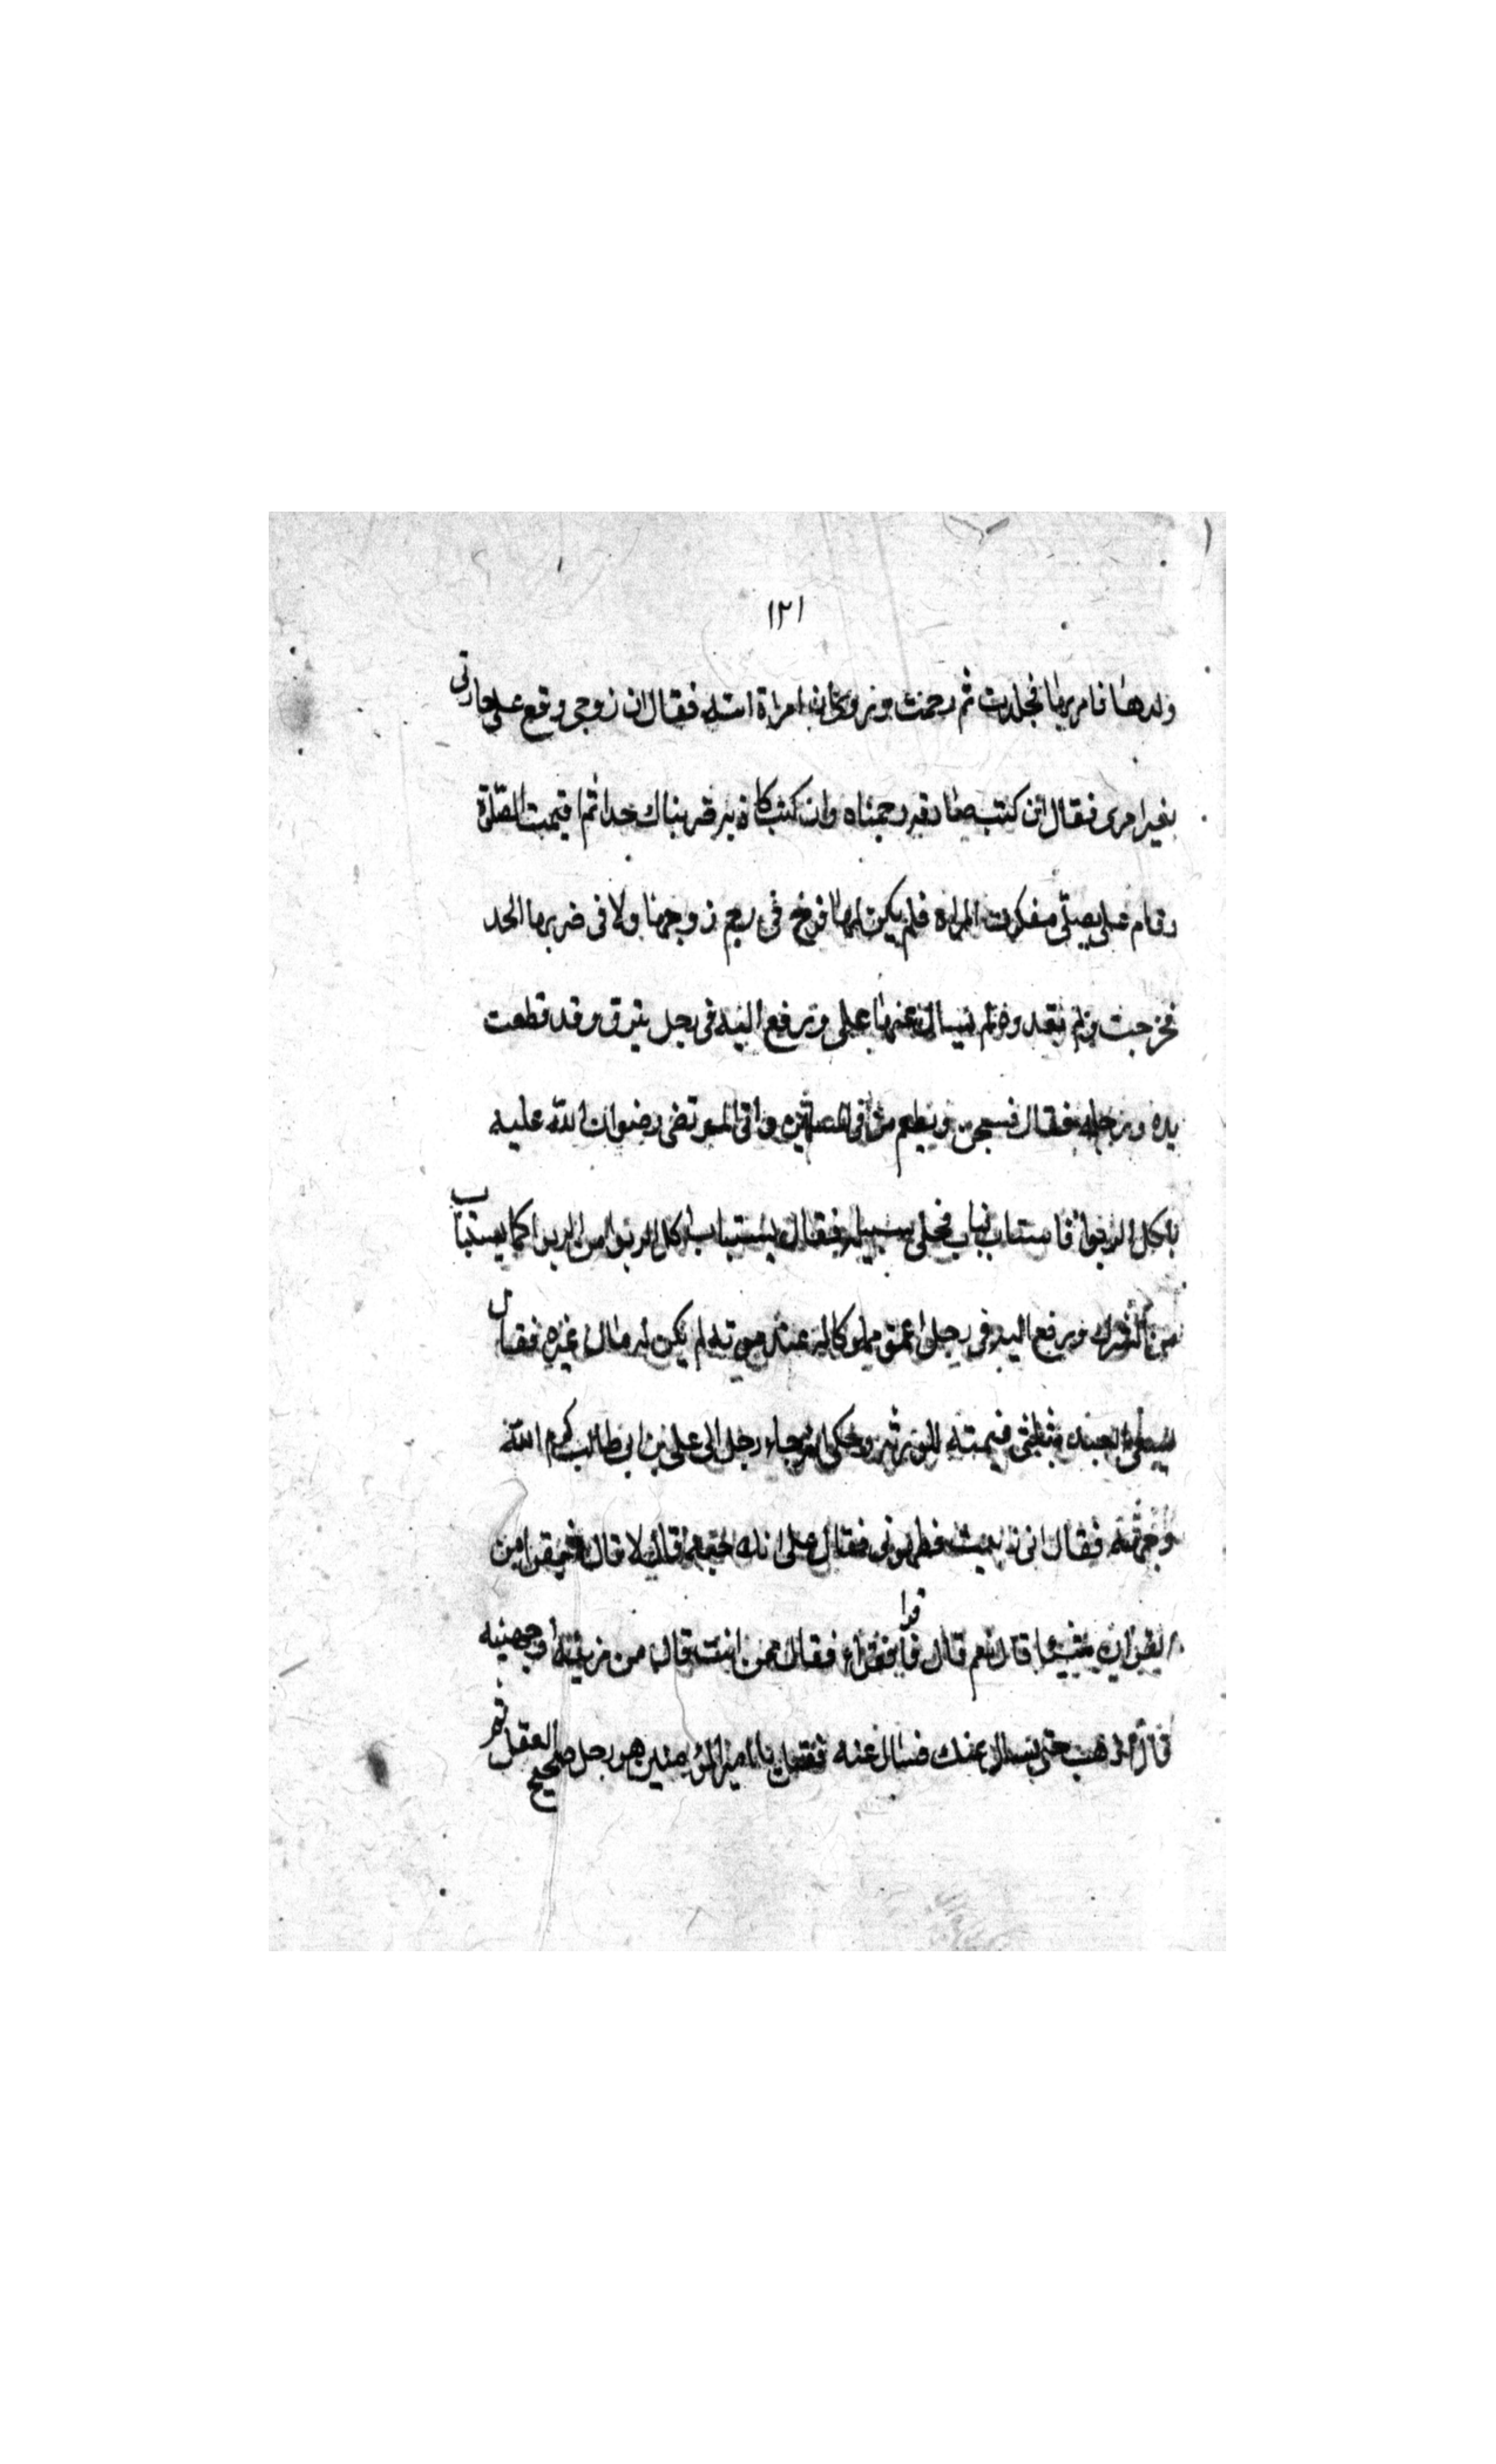 ١٢١
ولدها فامر بها فجلدت ثم رجمت وروى ان امراة اتته فقال ان زوجى وقع على جارتى
بغير امرى فقال ان كنت صادقه رجمناه وان كنت كاذبه ضربناك حدا ثم اقيمت الصلاة
وقام على يصلى ففكرت المراة فلم يكن لها فرج فى رجم زوجها ولا فى ضربها الحد
فخرجت ولم تعد ولم يسال عنها على ورفع اليه فى رجل سرق وقد قطعت
يده ورجله فقال فسجن ويطعم من فى المسلمين واتى المرتضى رضوان الله عليه
باكل الربوا فاستتاب فتاب فخلى سبيله فقال يستتاب اكل الربوا من الربوا كما يستتاب
من الشرك ورفع اليه فى رجل اعتق مملوكا له عند موته لم يكن له مال غيره فقال
يسعى العبد فى قيمته للورثه وحكى انه جاء رجل الى على بن ابى طالب كرم الله
وجهه فقال انى زنيت فطهرنى فقال على انك قال لا قال فتقرا من
القران شيئا قال نعم قال فاقرا فقراء فقال ممن انت قال من مزينه او جهينه
قال اذهب حتى نسال عنك فسال عنه فقيل يا امير المؤمنين هو رجل صحيح العقل ثم